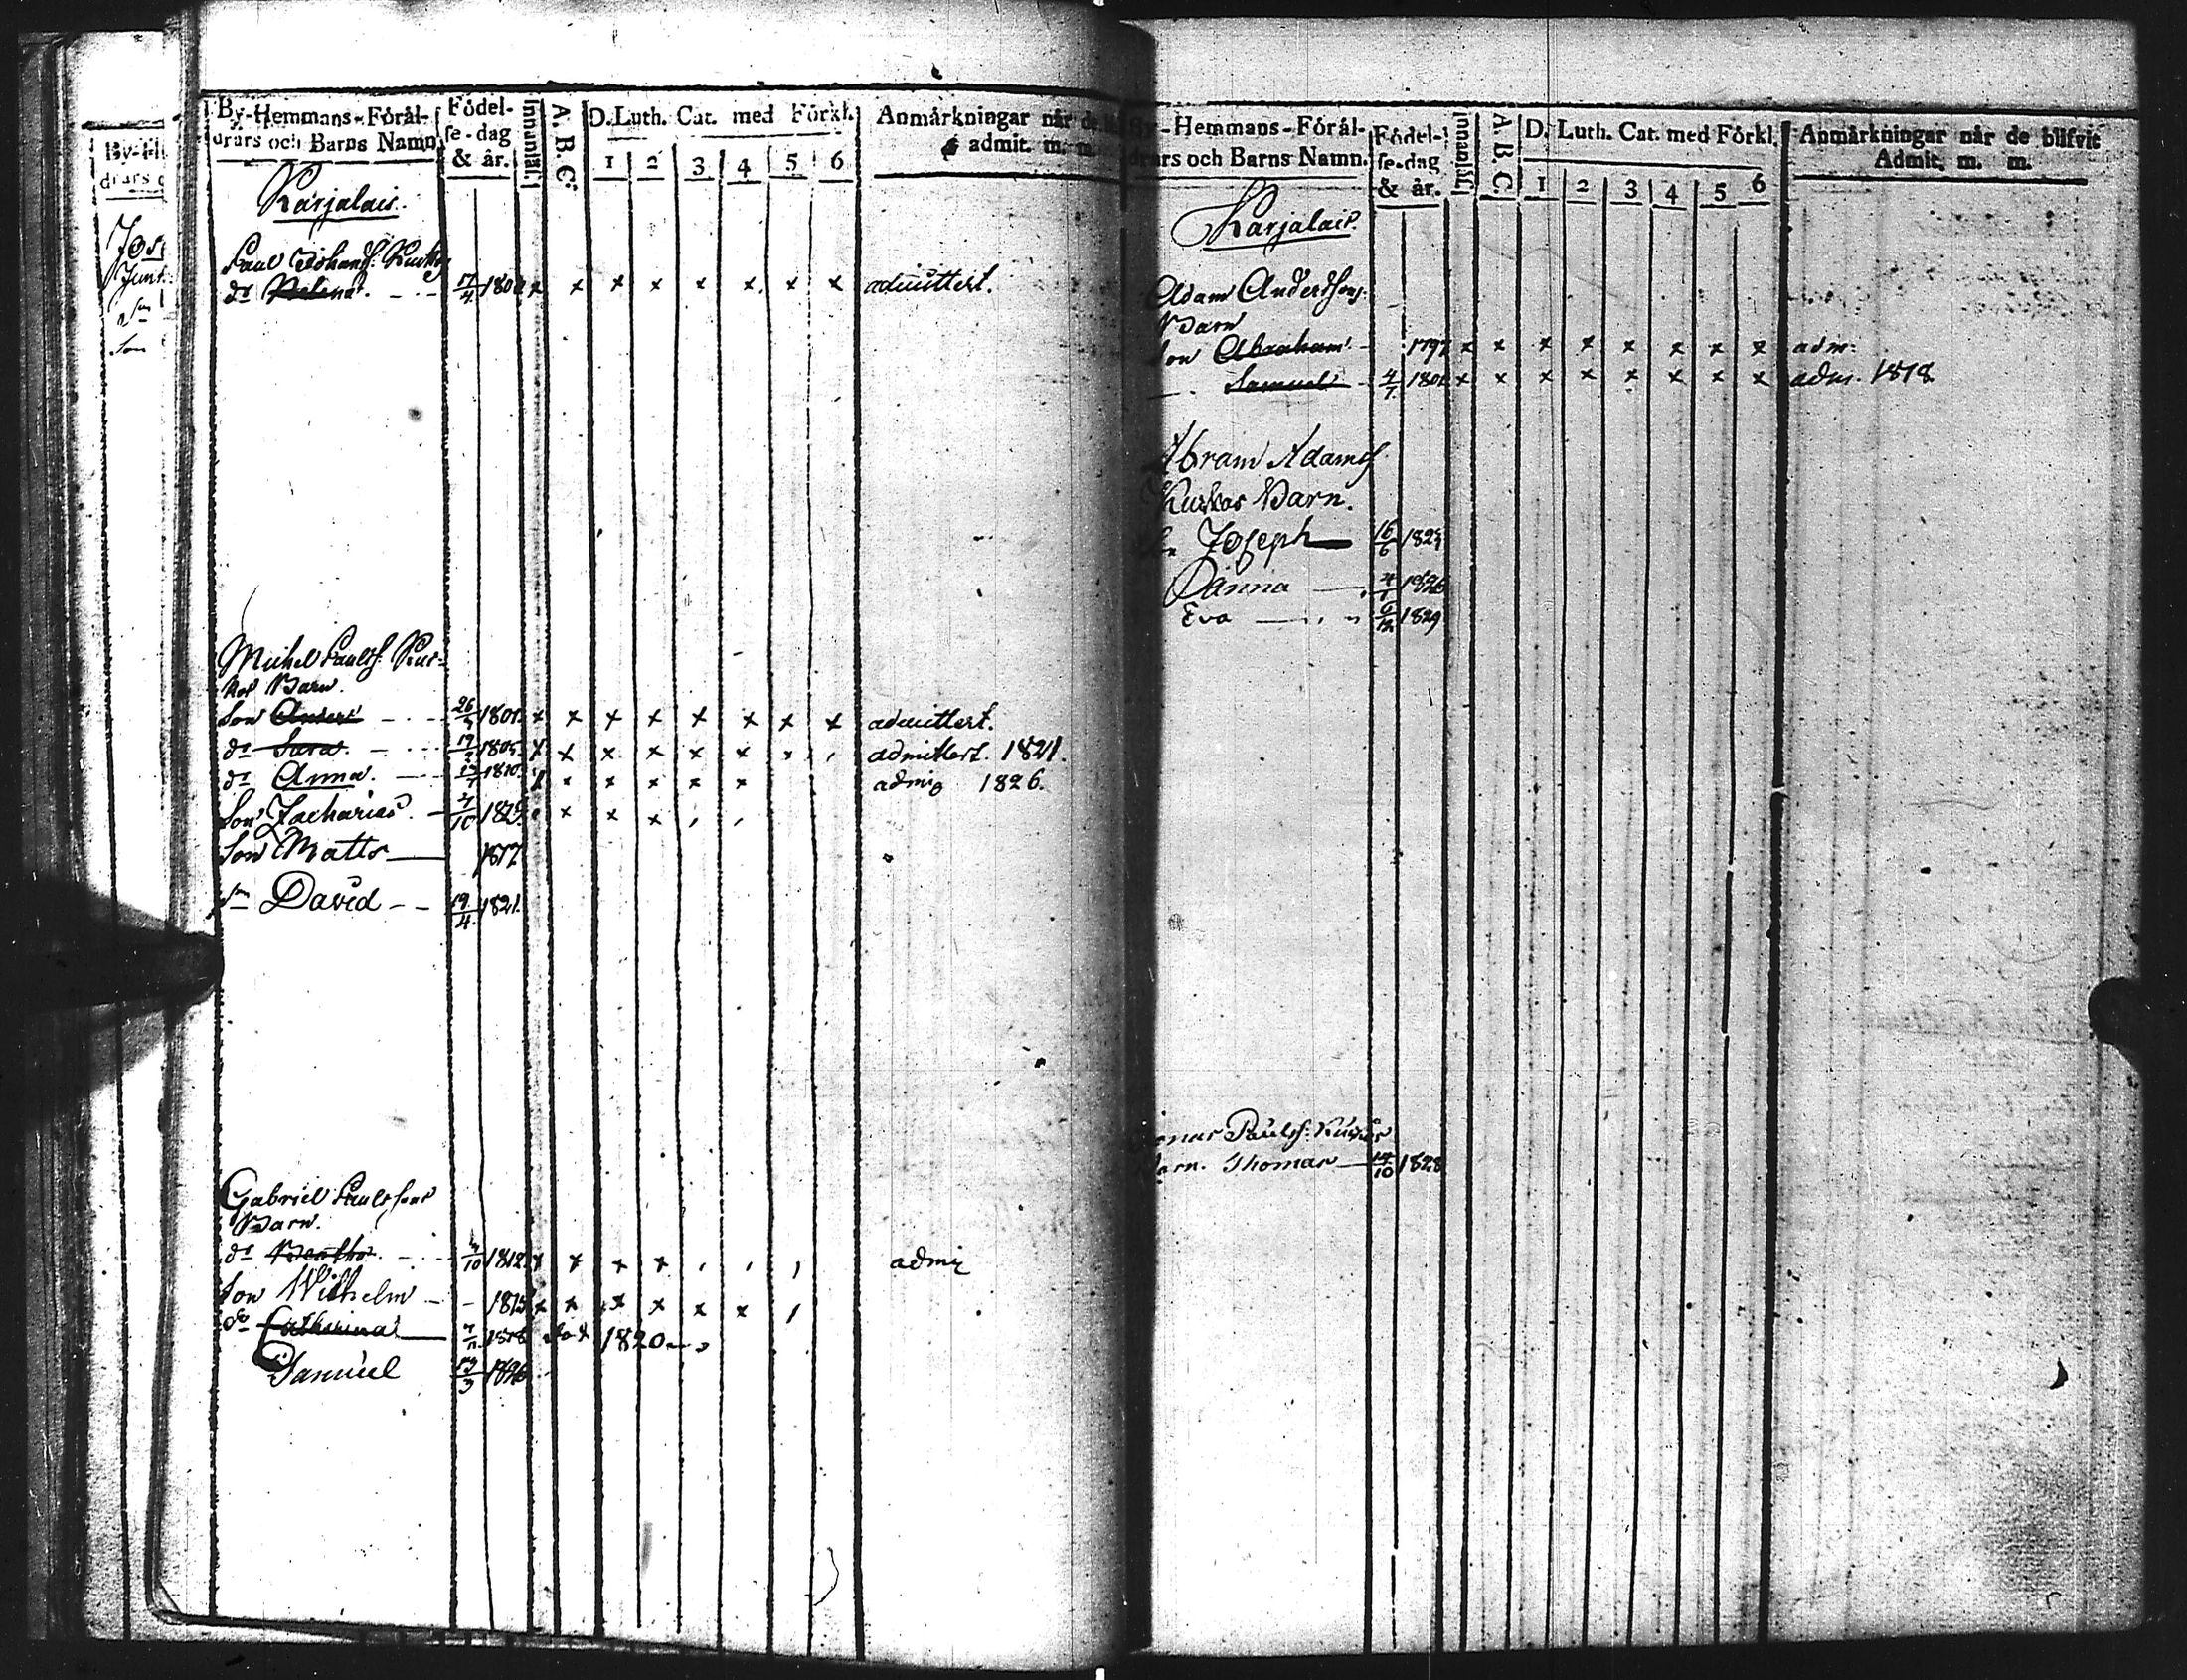 By-He
drars o
Jos
Junt
sn
Son
By-Hemmans-Förål-
drars och Barns Namn
Födel-
se-dag
& år.
Innanläs.
A. B. C.
D. Luth. Cat. med Förkl.
1 2 3 4 5 6
Anmårkningar når de
admit. m. m.
Karjalais.
Paul Johans.
dr Helena 17/4 x x x x x x x x admittert.
Michel Paulss. Kus-
kos Barn.
Son Anders 1801. x x x x x x x x admittert.
dr Sara 1805. x x x x x x admittert. 1821.
dr Anna 1810. x x x x x admig 1826.
Son Zacharias x x x
Son Matts 1817
sn David 19/4 1821.
Gabriel Paulssons
Barn.
dr Bertha 1812 x x x x admig
Son Wilhelm 1815 x x x x x x
dr Catharina 1818 död 1820
Samuel 1826
By-Hemmans-Förål-
drars och Barns Namn.
Födel-
se-dag
& år.
Innanläs.
A. B. C.
D. Luth. Cat. med Förkl.
1 2 3 4 5 6
Anmårkningar når de blifvit
Admit. m. m.
Karjalais.
Adam Anderssons
Barn
Son Abraham 1797 x x x x x x x x adm.
Samuel 4/7 x x x x x x x x adm. 1818
Abram Adamss
Kuskos Barn.
Sn Joseph 16/6
Hanna 1826
Eva 1829
Paulss.
Barn. Thomas 1828